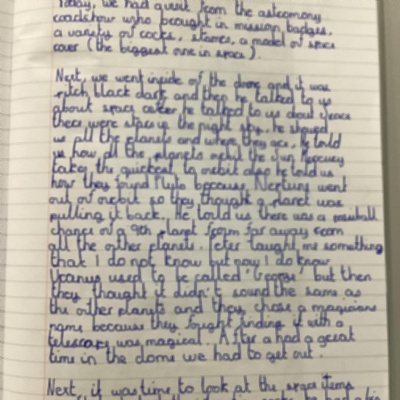 Today, we had guest from the astronomy
roadshow who brought in mission badges,
a variety of rocks, stones, a model of space
rover (the biggest one in space).
Next, we went inside of the dome and it was
pitch black dark and then he talked to us
about space after he talked to us about
there were stars in the night sky, he showed
us all the planets and where they are, he told
us how all the planets orbit the Sun Mercury
takes the quickest to orbit also he told us
how they found Pluto because Neptune went
out of orbit so they thought a planet was
pulling it back. He told us there was a small
chance of a 9th planet from far away from
all the other planets. Peter taught me something
that I do not know but now I do know
Uranus used to be called 'George' but then
they thought it didn't sound the same as
the other planets and they chose a magicians
name because they fought finding it with a
telescope was magical. After a had a great
time in the dome we had to get out.
Next, it was time to look at the space items